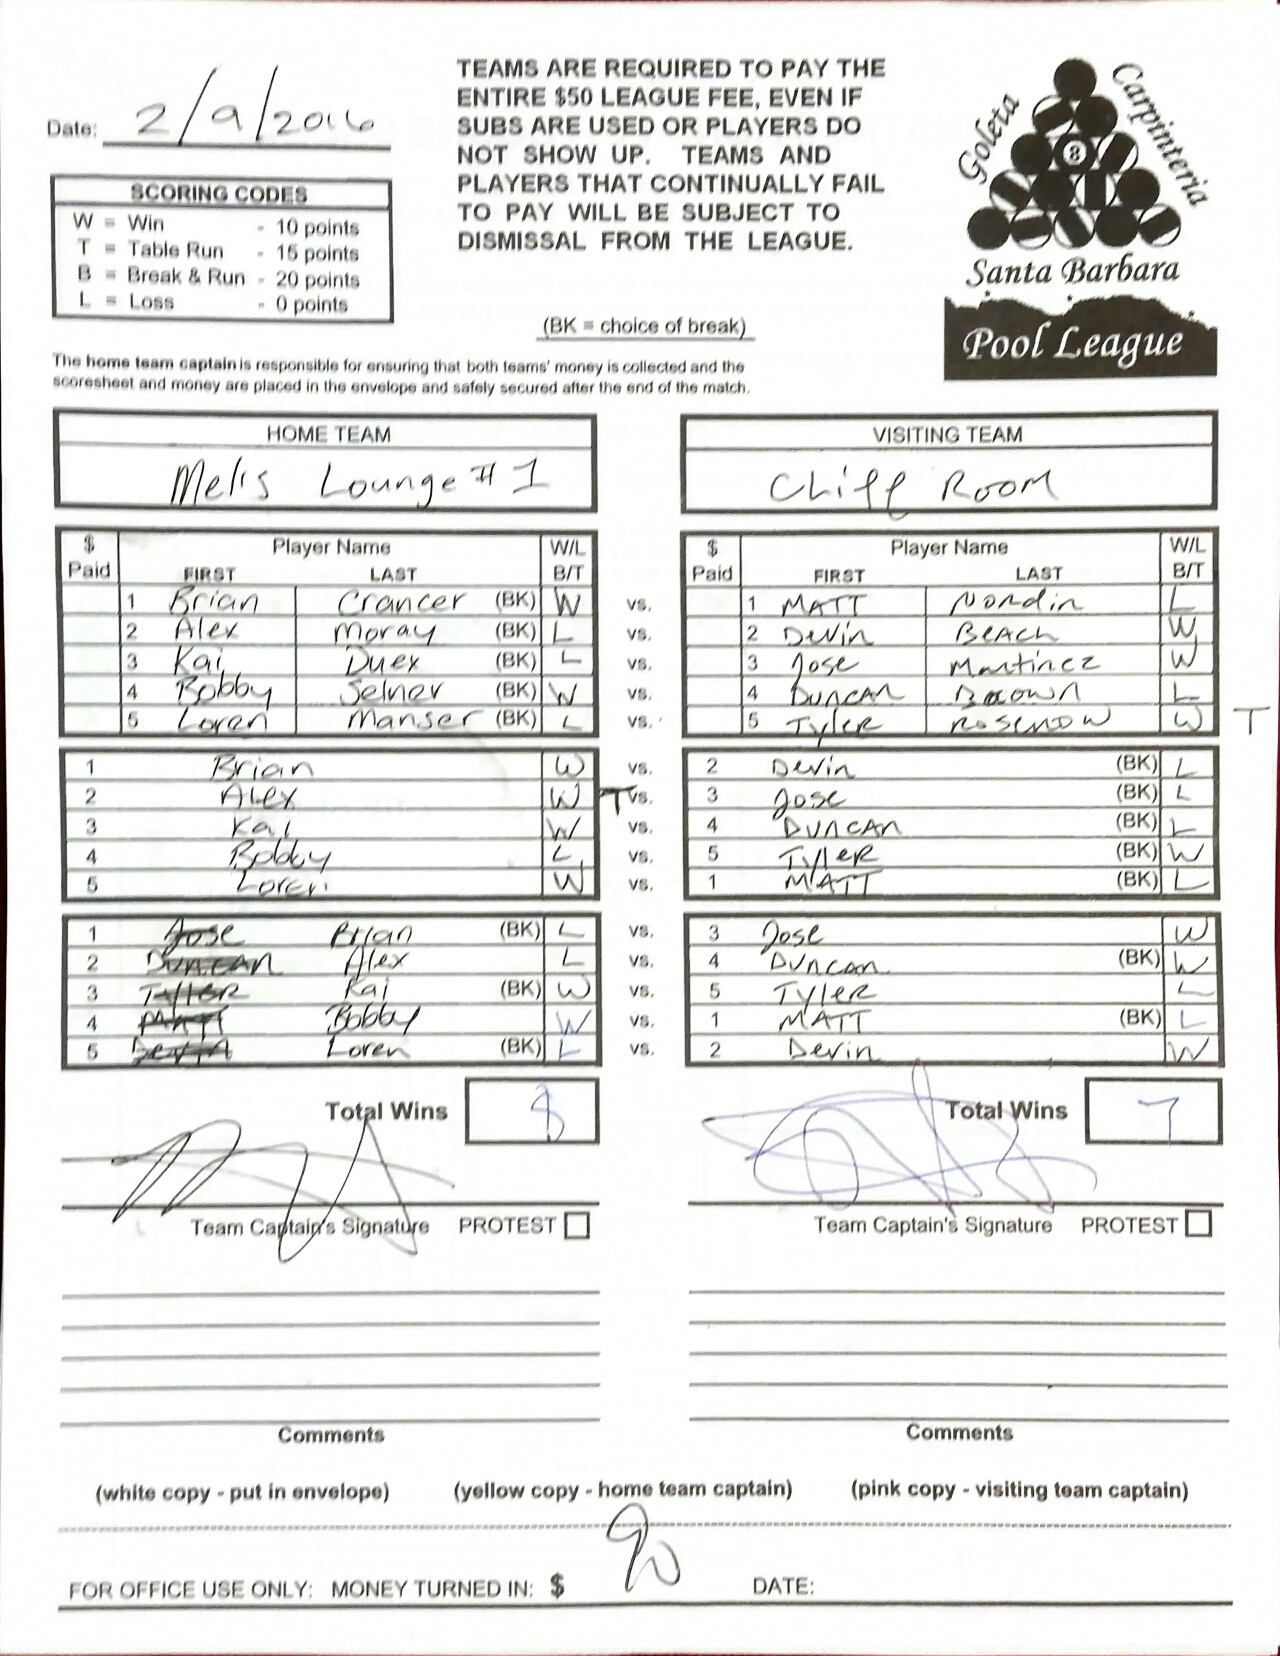 Date: 2/9/2016
TEAMS ARE REQUIRED TO PAY THE
ENTIRE $50 LEAGUE FEE, EVEN IF
SUBS ARE USED OR PLAYERS DO
NOT SHOW UP. TEAMS AND
PLAYERS THAT CONTINUALLY FAIL
TO PAY WILL BE SUBJECT TO
DISMISSAL FROM THE LEAGUE.
Goleta
Carpinteria
8
Santa Barbara
Pool League
SCORING CODES
W = Win - 10 points
T = Table Run - 15 points
B = Break & Run - 20 points
L = Loss - 0 points
(BK = choice of break)
The home team captain is responsible for ensuring that both teams' money is collected and the
scoresheet and money are placed in the envelope and safely secured after the end of the match.
HOME TEAM VISITING TEAM
Mel's Lounge #1 Cliff Room
$ Player Name W/L $ Player Name W/L
Paid FIRST LAST B/T Paid FIRST LAST B/T
1 Brian Crancer (BK) W vs. 1 MATT Nordin L
2 Alex Moray (BK) L vs. 2 Devin BEACH W
3 Kai Duex (BK) L vs. 3 Jose Martinez W
4 Bobby Selner (BK) W vs. 4 DUNCAN Brown L
5 Loren Manser (BK) L vs. 5 Tyler Rosenow W T
1 Brian W vs. 2 Devin (BK) L
2 Alex W T vs. 3 Jose (BK) L
3 Kai W vs. 4 DUNCAN (BK) L
4 Bobby L vs. 5 Tyler (BK) W
5 Loren W vs. 1 MATT (BK) L
1 Jose Brian (BK) L vs. 3 Jose W
2 DUNCAN Alex L vs. 4 DUNCAN (BK) W
3 Tyler Kai (BK) W vs. 5 Tyler L
4 MATT Bobby W vs. 1 MATT (BK) L
5 Devin Loren (BK) L vs. 2 Devin W
Total Wins 8 Total Wins 7
Team Captain's Signature PROTEST Team Captain's Signature PROTEST
Comments Comments
(white copy - put in envelope) (yellow copy - home team captain) (pink copy - visiting team captain)
FOR OFFICE USE ONLY: MONEY TURNED IN: $ 90 DATE: